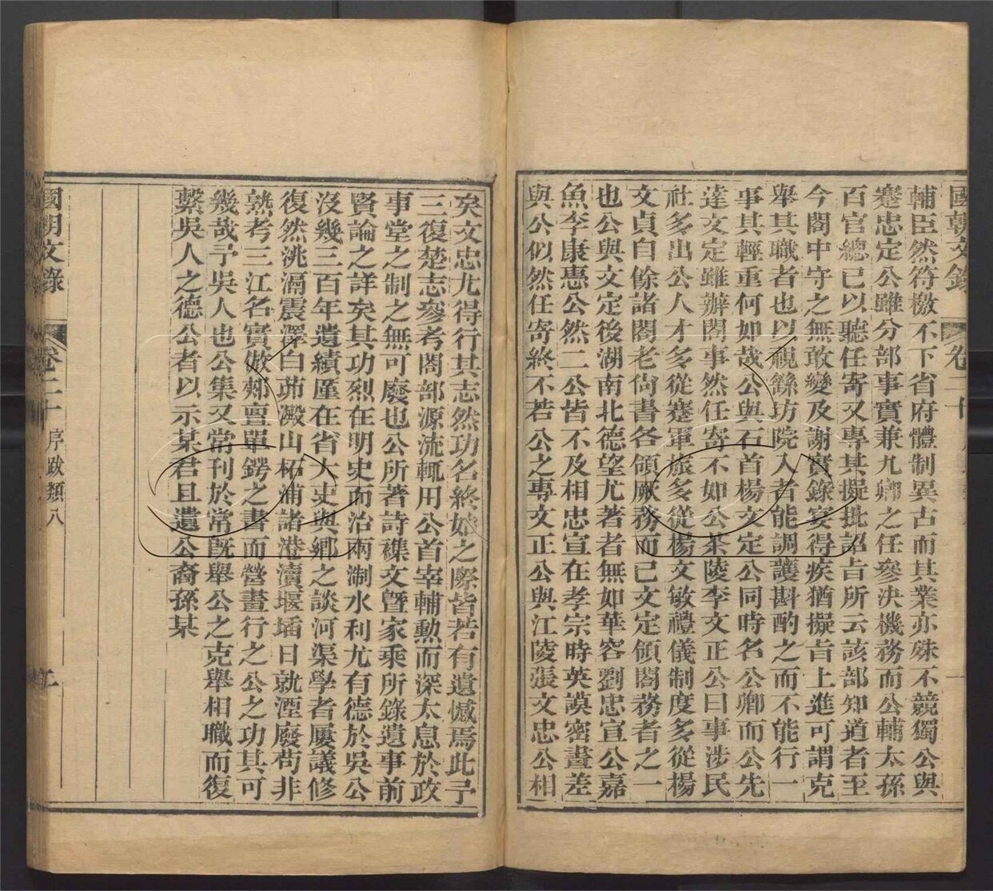 國朝文錄 卷二十
輔臣然符檄不下省府體制異古而其業亦殊不競獨公與
蹇忠定公雖分部事實兼九卿之任參決機務而公輔太孫
百官總已以聽任寄又專其擬批詔旨所云該部知道者至
今閣中守之無敢變及謝實錄宴得疾猶擬旨上進可謂克
舉其職者也以視絲坊院入者能調護斟酌之而不能行一
事其輕重何如哉公與石首楊文定公同時名公卿而公先
達文定雖辦閣事然任寄不如公茶陵李文正公曰事涉民
社多出公人才多從蹇軍旅多從楊文敏禮儀制度多從楊
文貞自餘諸閣老尚書各領厥務而已文定領閣務者之一
也公與文定後湖南北德望尤著者無如華容劉忠宣公嘉
魚李康惠公然二公皆不及相忠宣在孝宗時英謨密畫差
與公似然任寄終不若公之專文正公與江陵張文忠公相
矣文忠尤得行其志然功名終始之際皆若有遺憾焉此予
三復楚志參考閣部源流輒用公首宰輔勳而深太息於政
事堂之制之無可廢也公所著詩襍文暨家乘所錄遺事前
賢論之詳矣其功烈在明史而治兩淛水利尤有德於吳公
沒幾三百年遺績厪在省大吏與鄉之談河渠學者屢議修
復然洮滆震澤白茆澱山柘浦諸港瀆堰壖日就湮廢苟非
熟考三江名實倣郟亶單鍔之書而營畫行之公之功其可
幾哉予吳人也公集又常刊於常旣舉公之克舉相職而復
繫吳人之德公者以示某君且遺公裔孫某
國朝文錄 卷二十 序跋類八